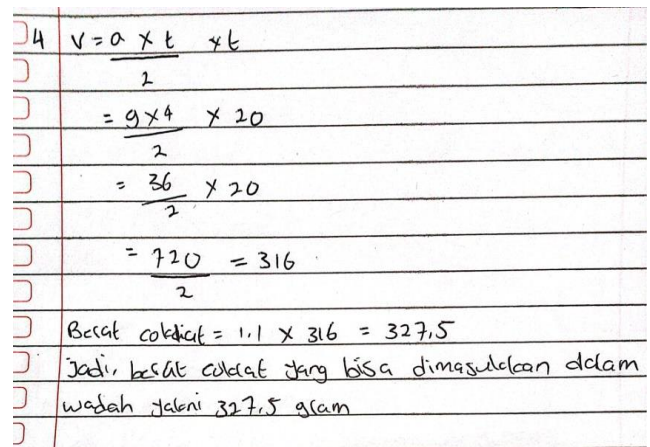 4 V = a x t x t
2
= 9 x 4 x 20
2
= 36 x 20
2
= 720 = 316
2
Berat coklat = 1.1 x 316 = 327,5
Jadi, berat coklat yang bisa dimasukkan dalam
wadah yakni 327,5 gram